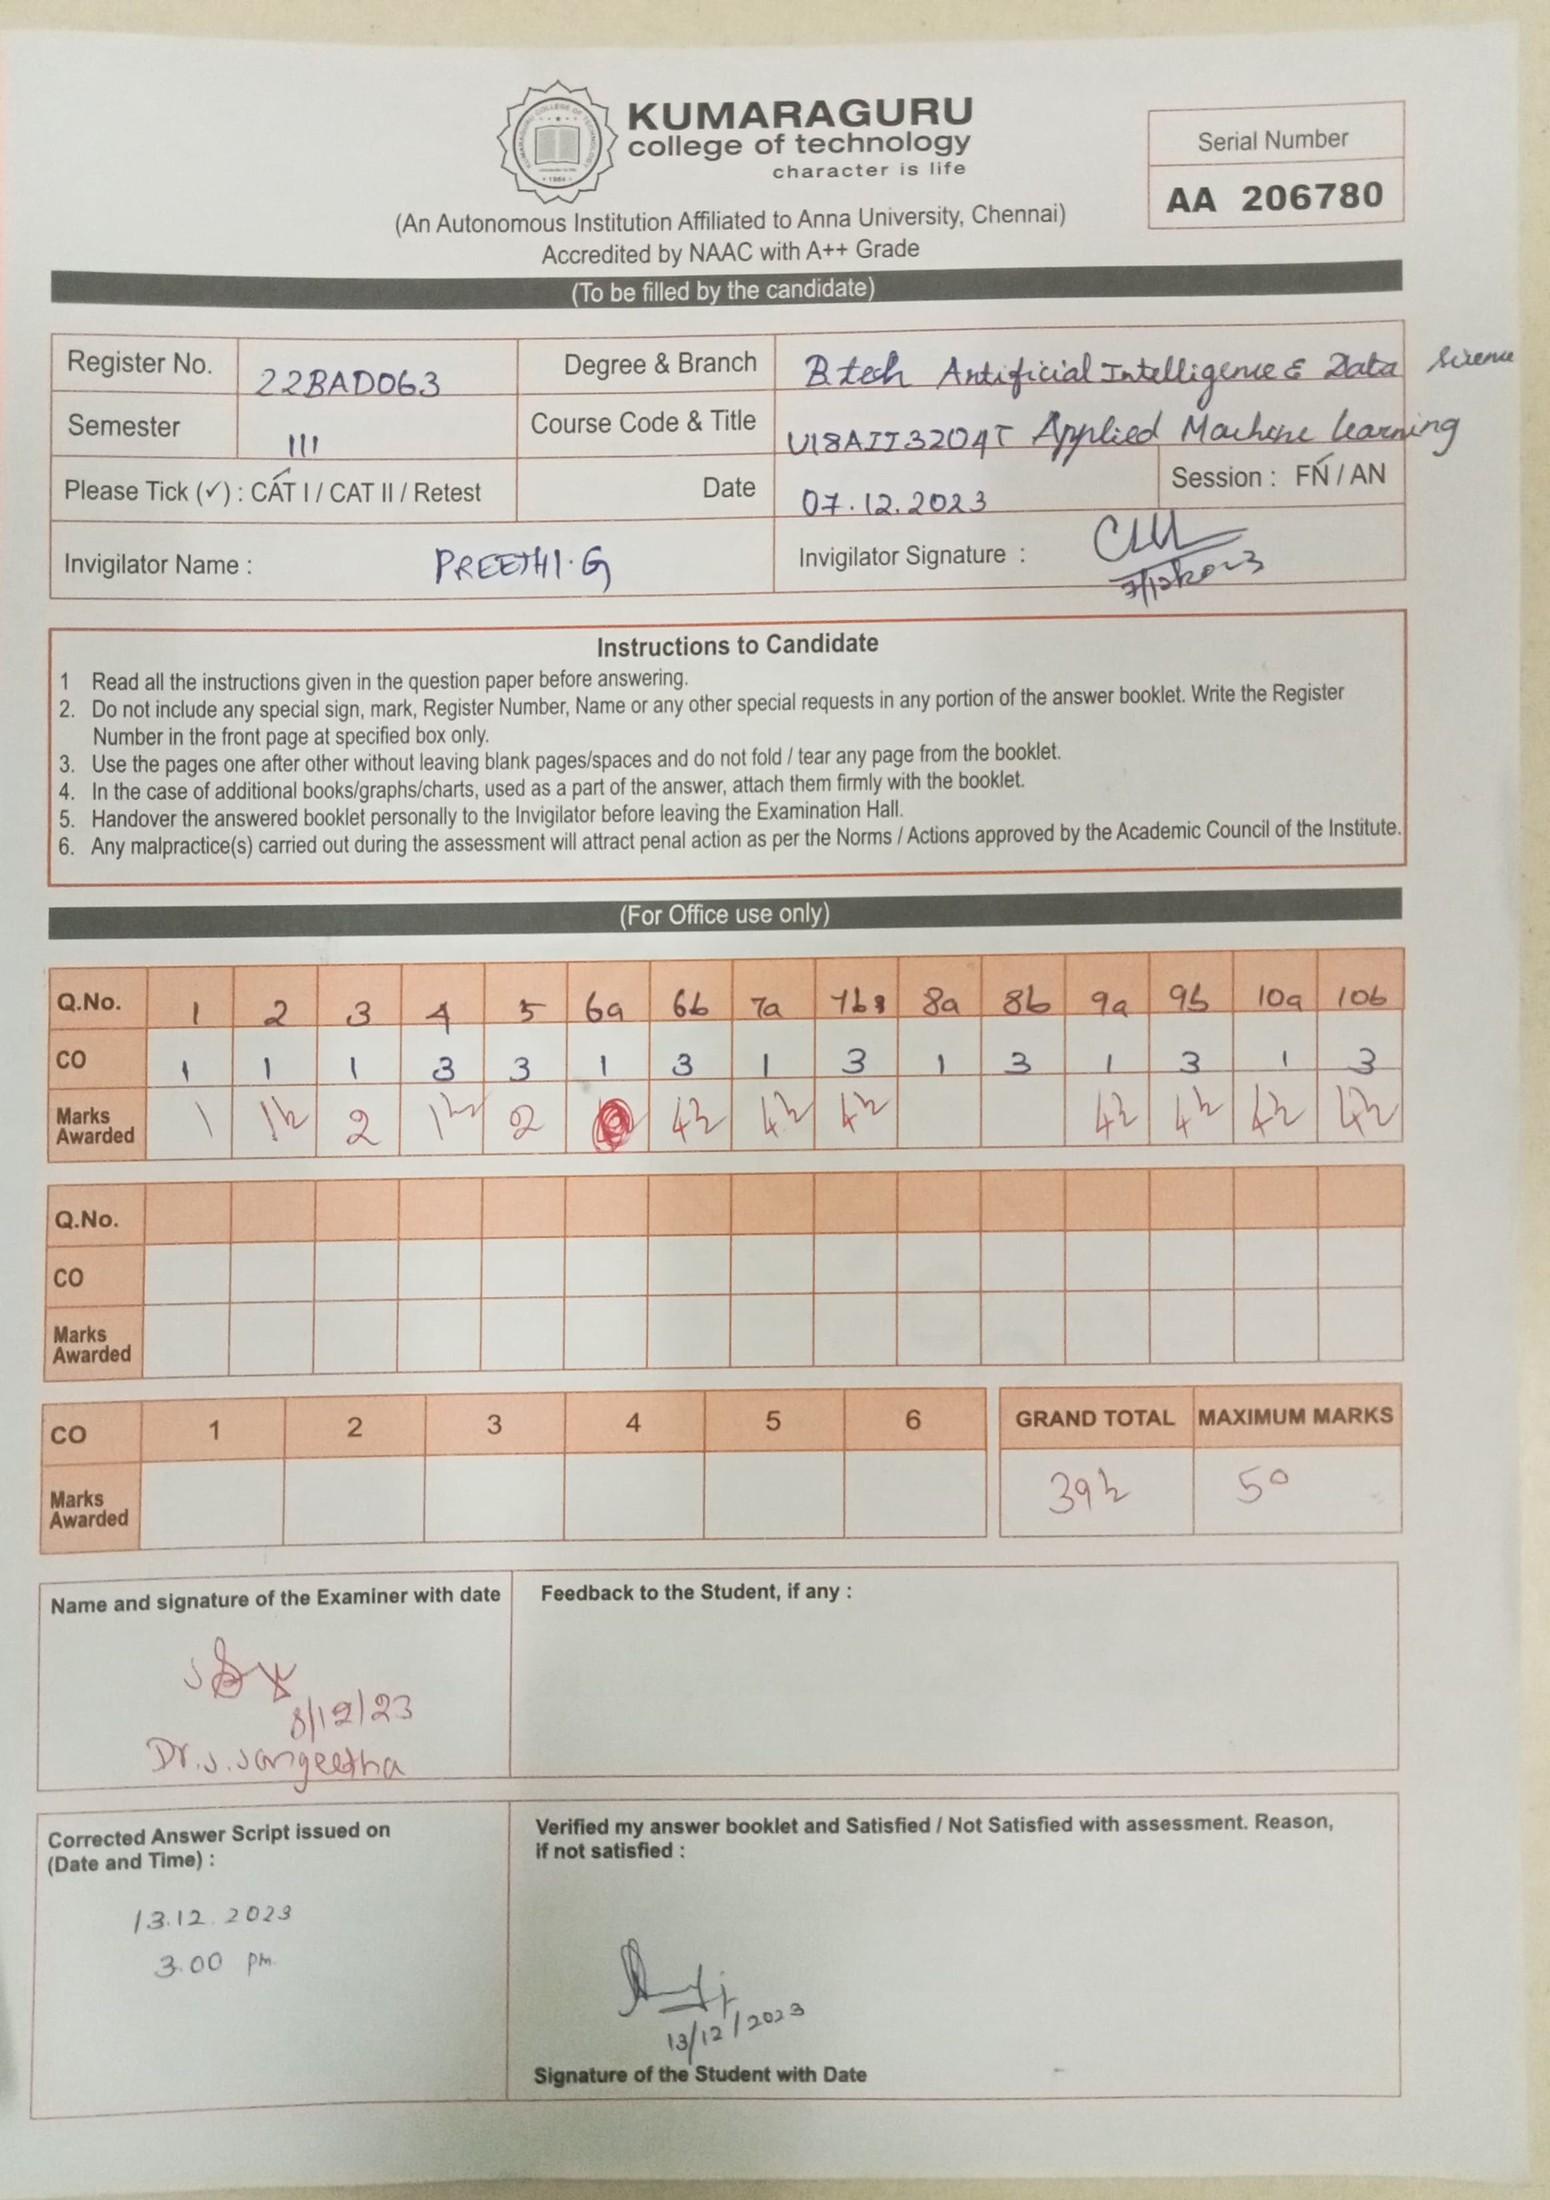 KUMARAGURU
college of technology
character is life
(An Autonomous Institution Affiliated to Anna University, Chennai)
Accredited by NAAC with A++ Grade
Serial Number
AA 206780
(To be filled by the candidate)
Register No. 22BAD063 Degree & Branch B.tech Artificial Intelligence & Data Science
Semester III Course Code & Title U18AII3204T Applied Machine Learning
Please Tick (✓) : CAT I / CAT II / Retest Date 07.12.2023 Session : FN / AN
Invigilator Name : PREETHI.G Invigilator Signature :
7/12/2023
Instructions to Candidate
1 Read all the instructions given in the question paper before answering.
2. Do not include any special sign, mark, Register Number, Name or any other special requests in any portion of the answer booklet. Write the Register
Number in the front page at specified box only.
3. Use the pages one after other without leaving blank pages/spaces and do not fold / tear any page from the booklet.
4. In the case of additional books/graphs/charts, used as a part of the answer, attach them firmly with the booklet.
5. Handover the answered booklet personally to the Invigilator before leaving the Examination Hall.
6. Any malpractice(s) carried out during the assessment will attract penal action as per the Norms / Actions approved by the Academic Council of the Institute.
(For Office use only)
Q.No. 1 2 3 4 5 6a 6b 7a 7b 8a 8b 9a 9b 10a 10b
CO 1 1 1 3 3 1 3 1 3 1 3 1 3 1 3
Marks Awarded 1 1½ 2 1½ 2 4½ 4½ 4½ 4½ 4½ 4½ 4½
Q.No.
CO
Marks
Awarded
CO 1 2 3 4 5 6 GRAND TOTAL MAXIMUM MARKS
Marks Awarded 39½ 50
Name and signature of the Examiner with date
8/12/23
Dr.S.Sangeetha
Feedback to the Student, if any :
Corrected Answer Script issued on
(Date and Time) :
13.12.2023
3.00 pm.
Verified my answer booklet and Satisfied / Not Satisfied with assessment. Reason,
if not satisfied :
13/12/2023
Signature of the Student with Date